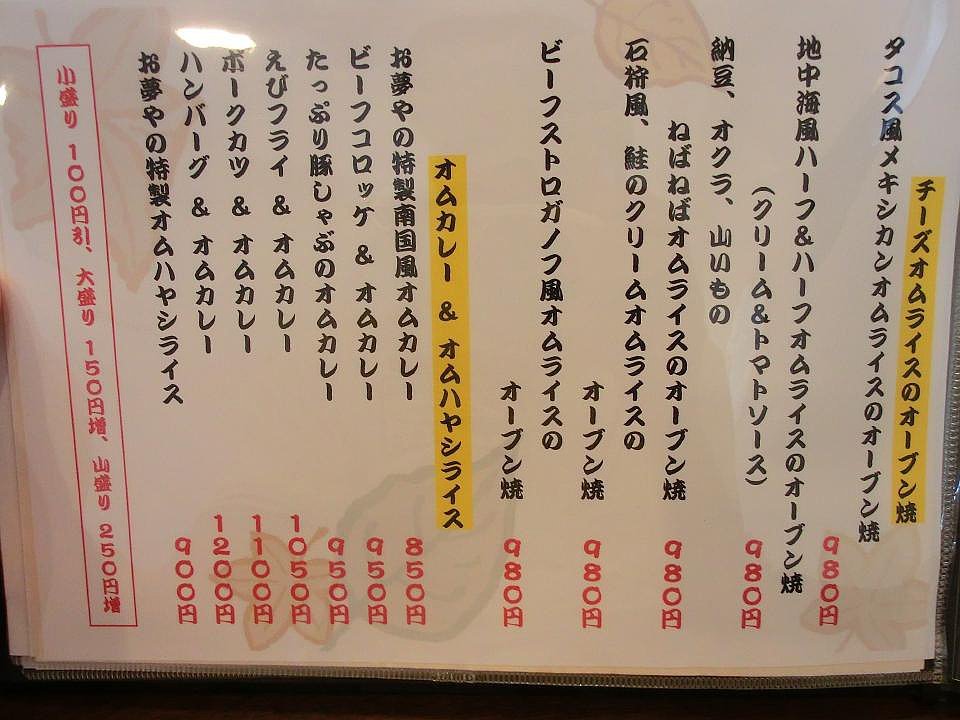 チーズオムライスのオーブン焼
タコス風メキシカンオムライスのオーブン焼
980円
地中海風ハーフ&ハーフオムライスのオーブン焼
(クリーム&トマトソース)
980円
納豆、オクラ、山いもの
ねばねばオムライスのオーブン焼
980円
石狩風、鮭のクリームオムライスの
オーブン焼
980円
ビーフストロガノフ風オムライスの
オーブン焼
980円
オムカレー & オムハヤシライス
お夢やの特製南国風オムカレー
850円
ビーフコロッケ & オムカレー
950円
たっぷり豚しゃぶのオムカレー
950円
えびフライ & オムカレー
1050円
ポークカツ & オムカレー
1100円
ハンバーグ & オムカレー
1200円
お夢やの特製オムハヤシライス
900円
小盛り 100円引、大盛り 150円増、山盛り 250円増